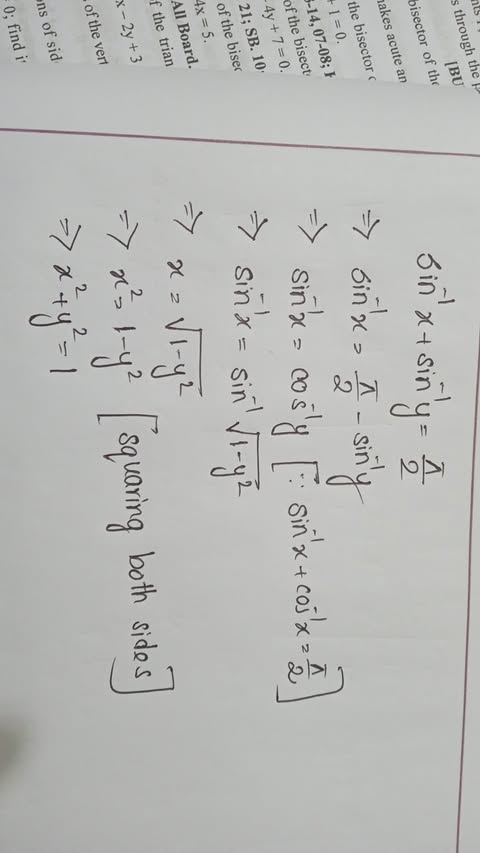 nts
s through the p
[BU
bisector of the
nakes acute an
the bisector o
+ 1 = 0.
-14, 07-08;
of the bisect
4y + 7 = 0.
21; SB. 10
of the bisec
4x = 5.
All Board.
f the trian
x – 2y + 3
of the vert
ons of sid
= 0; find
sin⁻¹x + sin⁻¹y = π/2
⇒ sin⁻¹x = π/2 – sin⁻¹y
⇒ sin⁻¹x = cos⁻¹y [∵ sin⁻¹x + cos⁻¹x = π/2]
⇒ sin⁻¹x = sin⁻¹√(1–y²)
⇒ x = √(1–y²)
⇒ x² = 1–y² [squaring both sides]
⇒ x² + y² = 1